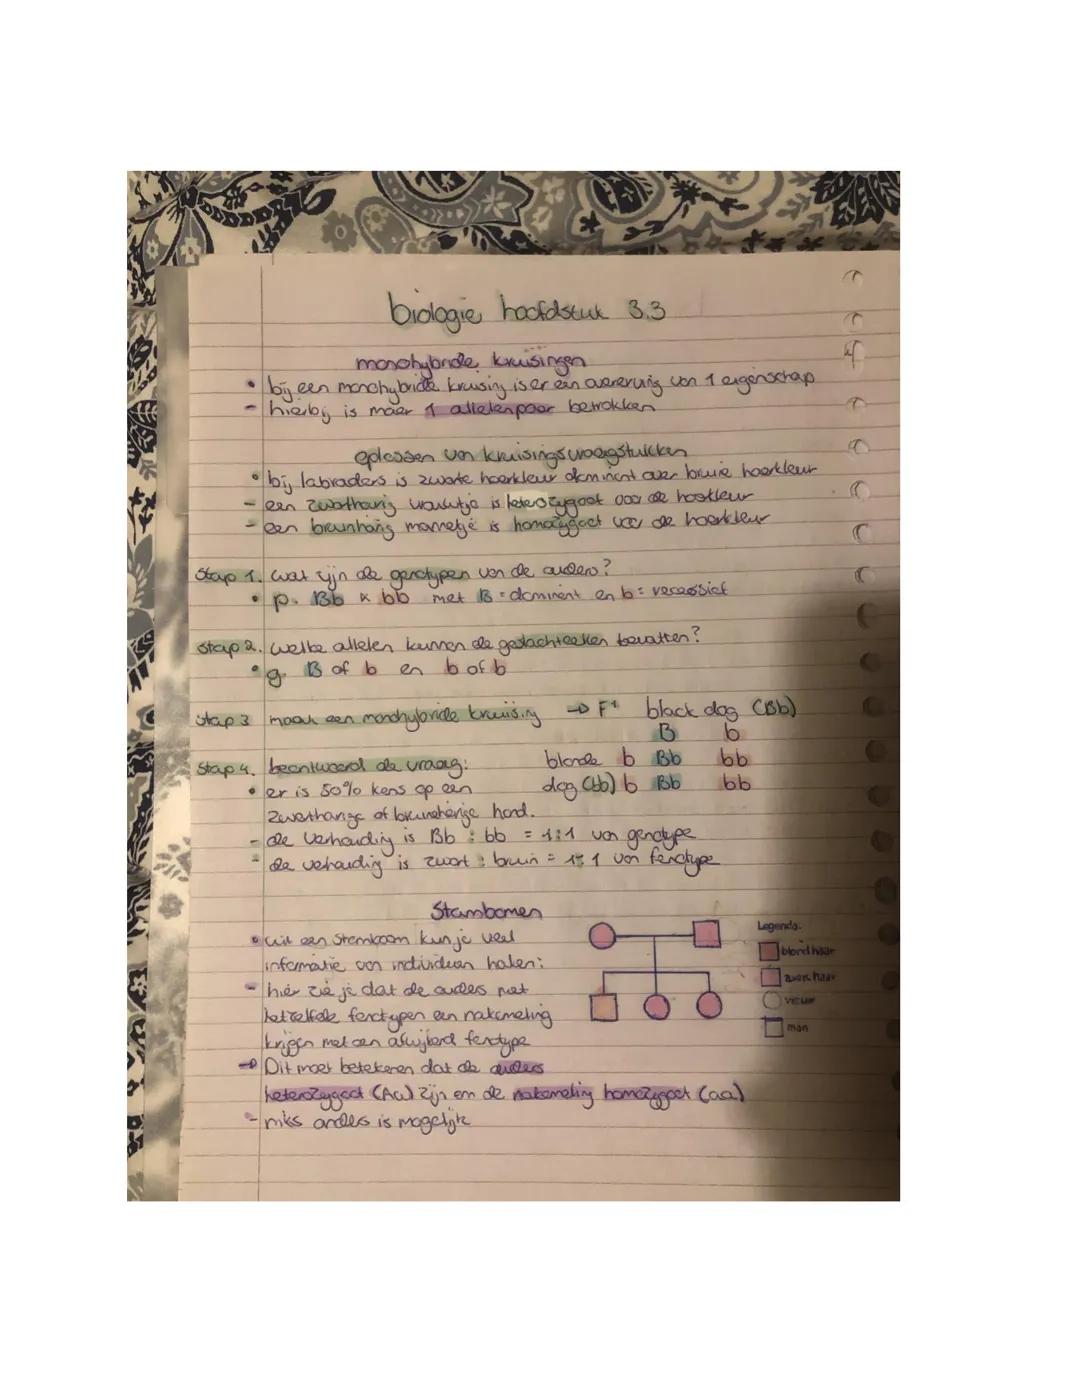 biologie hoofdstuk 3.3
monohybride kruisingen
• bij een monohybride kruising is er een overerving van 1 eigenschap
- hierbij is maar 1 allelenpaar betrokken
oplossen van kruisingsvraagstukken
• bij labradors is zwarte haarkleur dominant over bruine haarkleur
- een zwartharig vrouwtje is heterozygoot voor de haarkleur
- een bruinharig mannetje is homozygoot voor de haarkleur
Stap 1. wat zijn de genotypen van de ouders?
• p. Bb x bb met B = dominant en b = recessief
stap 2. welke allelen kunnen de geslachtcellen bevatten?
• g. B of b en b of b
stap 3 maak een monohybride kruising → F1 black dog (Bb)
B b
Stap 4. beantwoord de vraag: blonde b Bb bb
• er is 50% kans op een dog (bb) b Bb bb
zwartharige of bruineharige hond.
- de verhouding is Bb : bb = 1:1 van genotype
- de vehouding is zwart : bruin = 1:1 van fenotype
Stambomen
• uit een stamboom kun je veel
informatie van individuen halen:
- hier zie je dat de ouders met
hetzelfde fenotypen een nakomeling
krijgen met een afwijkend fenotype
→ Dit moet betekenen dat de ouders
heterozygoot (Aa) zijn en de nakomeling homozygoot (aa)
- niks anders is mogelijk
Legenda:
blond haar
zwart haar
vrouw
man